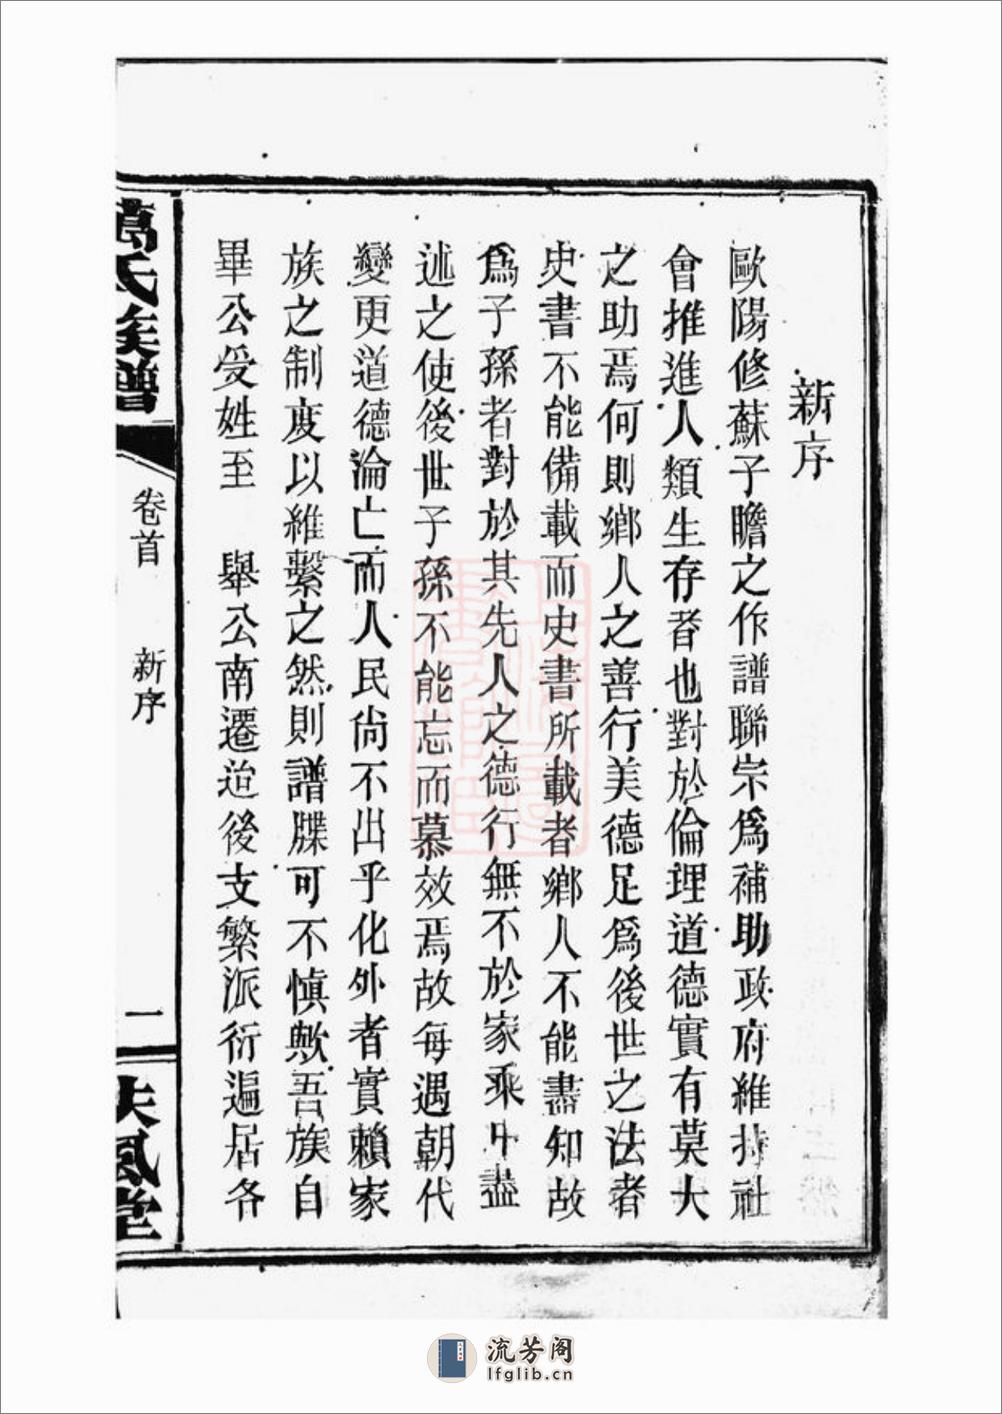 新序
歐陽修蘇子瞻之作譜聯宗爲補助政府維持社
會推進人類生存者也對於倫理道德實有莫大
之助焉何則鄉人之善行美德足爲後世之法者
史書不能備載而史書所載者鄉人不能盡知故
爲子孫者對於其先人之德行無不於家乘中盡
述之使後世子孫不能忘而慕效焉故每遇朝代
變更道德淪亡而人民尙不出乎化外者實賴家
族之制度以維繫之然則譜牒可不慎歟吾族自
畢公受姓至 舉公南遷迨後支繁派衍遍居各
萬氏族譜
卷首 新序
一
扶風堂
流芳阁
lfglib.cn